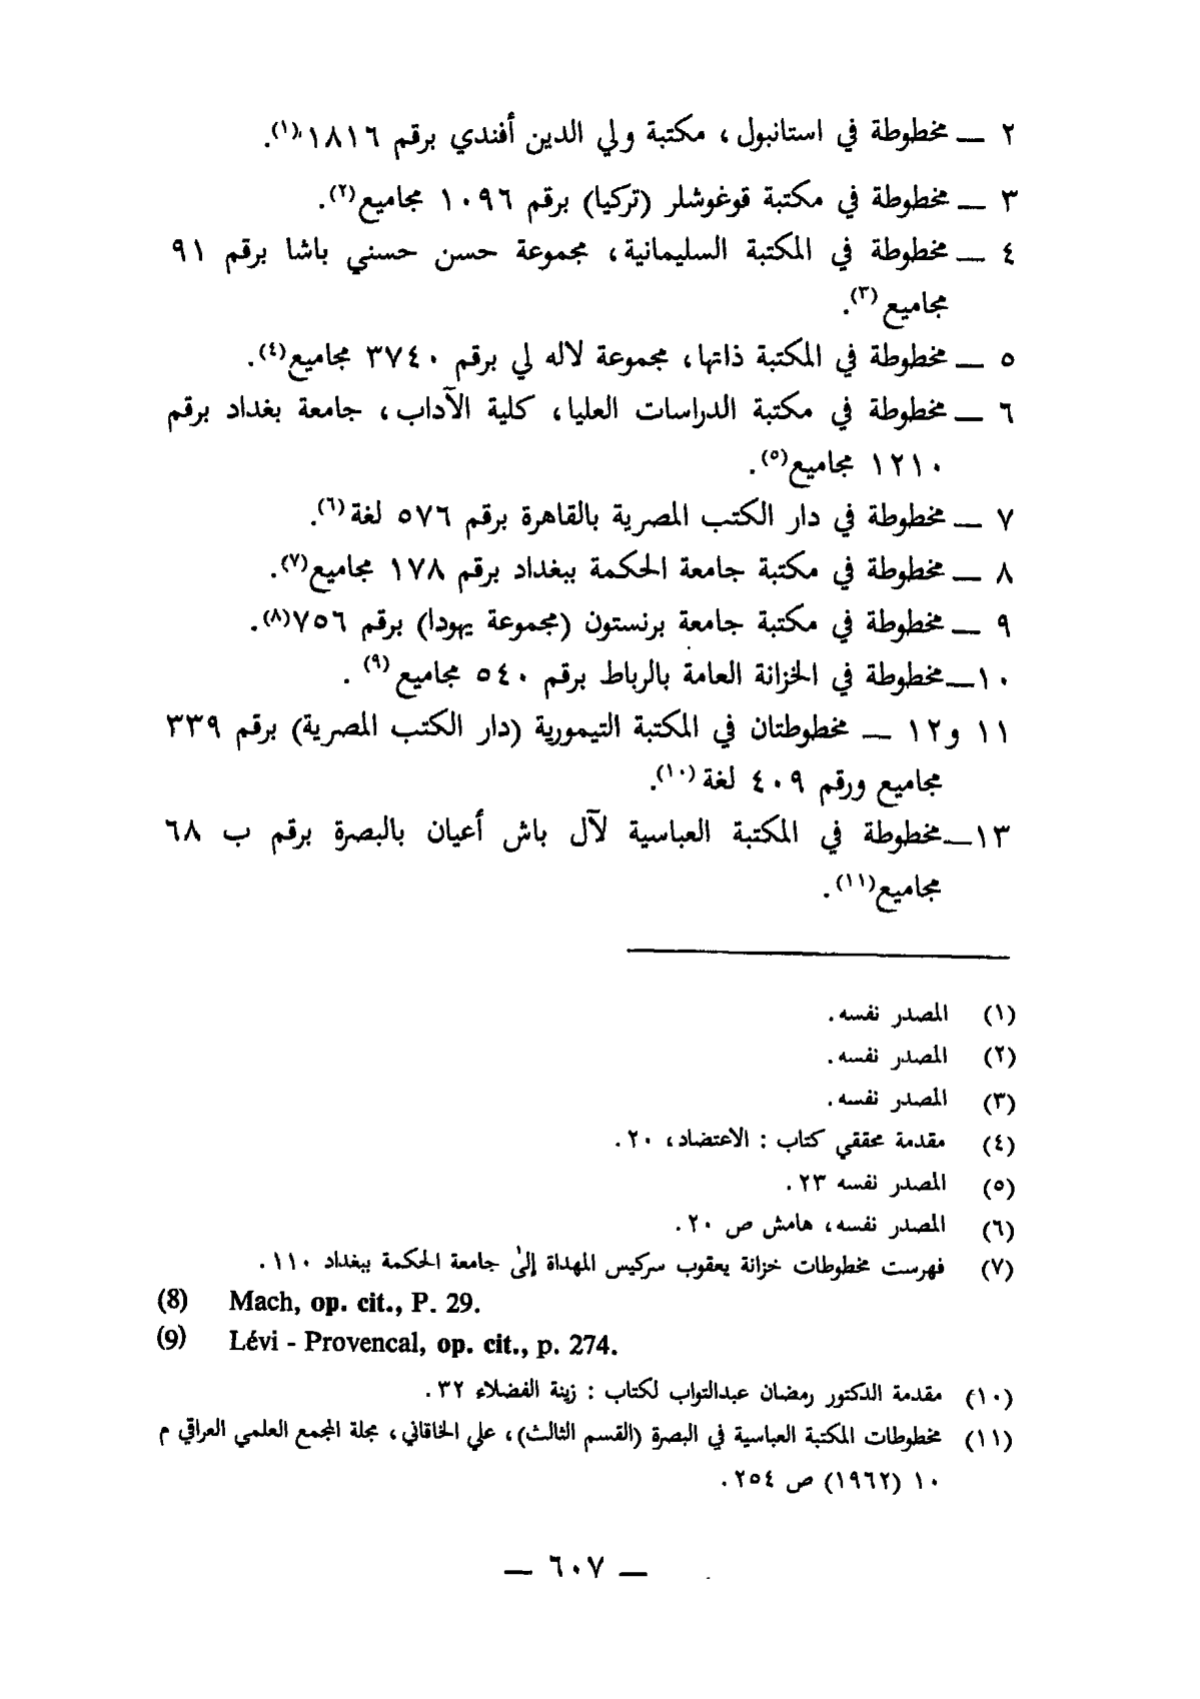 ٢ — مخطوطة في استانبول، مكتبة ولي الدين أفندي برقم ١٨١٦(١).
٣ — مخطوطة في مكتبة قوغوشلر (تركيا) برقم ١٠٩٦ مجاميع(٢).
٤ — مخطوطة في المكتبة السليمانية، مجموعة حسن حسني باشا برقم ٩١
مجاميع(٣).
٥ — مخطوطة في المكتبة ذاتها، مجموعة لاله لي برقم ٣٧٤٠ مجاميع(٤).
٦ — مخطوطة في مكتبة الدراسات العليا، كلية الآداب، جامعة بغداد برقم
١٢١٠ مجاميع(٥).
٧ — مخطوطة في دار الكتب المصرية بالقاهرة برقم ٥٧٦ لغة(٦).
٨ — مخطوطة في مكتبة جامعة الحكمة ببغداد برقم ١٧٨ مجاميع(٧).
٩ — مخطوطة في مكتبة جامعة برنستون (مجموعة يهودا) برقم ٧٥٦(٨).
١٠— مخطوطة في الخزانة العامة بالرباط برقم ٥٤٠ مجاميع(٩).
١١ و١٢ — مخطوطتان في المكتبة التيمورية (دار الكتب المصرية) برقم ٣٣٩
مجاميع ورقم ٤٠٩ لغة(١٠).
١٣— مخطوطة في المكتبة العباسية لآل باش أعيان بالبصرة برقم ب ٦٨
مجاميع(١١).
(١) المصدر نفسه.
(٢) المصدر نفسه.
(٣) المصدر نفسه.
(٤) مقدمة محققي كتاب : الاعتضاد، ٢٠.
(٥) المصدر نفسه ٢٣.
(٦) المصدر نفسه، هامش ص ٢٠.
(٧) فهرست مخطوطات خزانة يعقوب سركيس المهداة إلىٰ جامعة الحكمة ببغداد ١١٠.
(8) Mach, op. cit., P. 29.
(9) Lévi - Provencal, op. cit., p. 274.
(١٠) مقدمة الدكتور رمضان عبدالتواب لكتاب : زينة الفضلاء ٣٢.
(١١) مخطوطات المكتبة العباسية في البصرة (القسم الثالث)، علي الخاقاني، مجلة المجمع العلمي العراقي م
١٠ (١٩٦٢) ص ٢٥٤.
— ٦٠٧ —